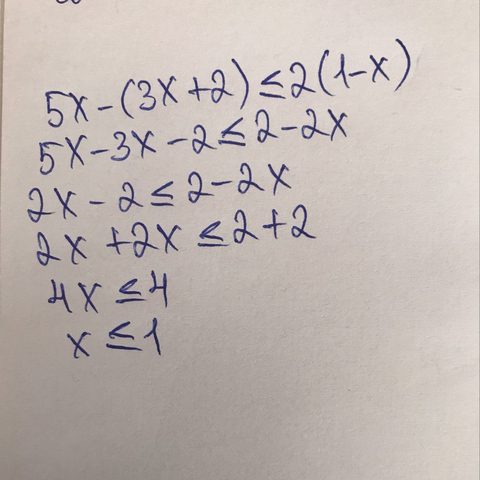 5x-(3x+2)≤2(1-x)
5x-3x-2≤2-2x
2x-2≤2-2x
2x+2x≤2+2
4x≤4
x≤1